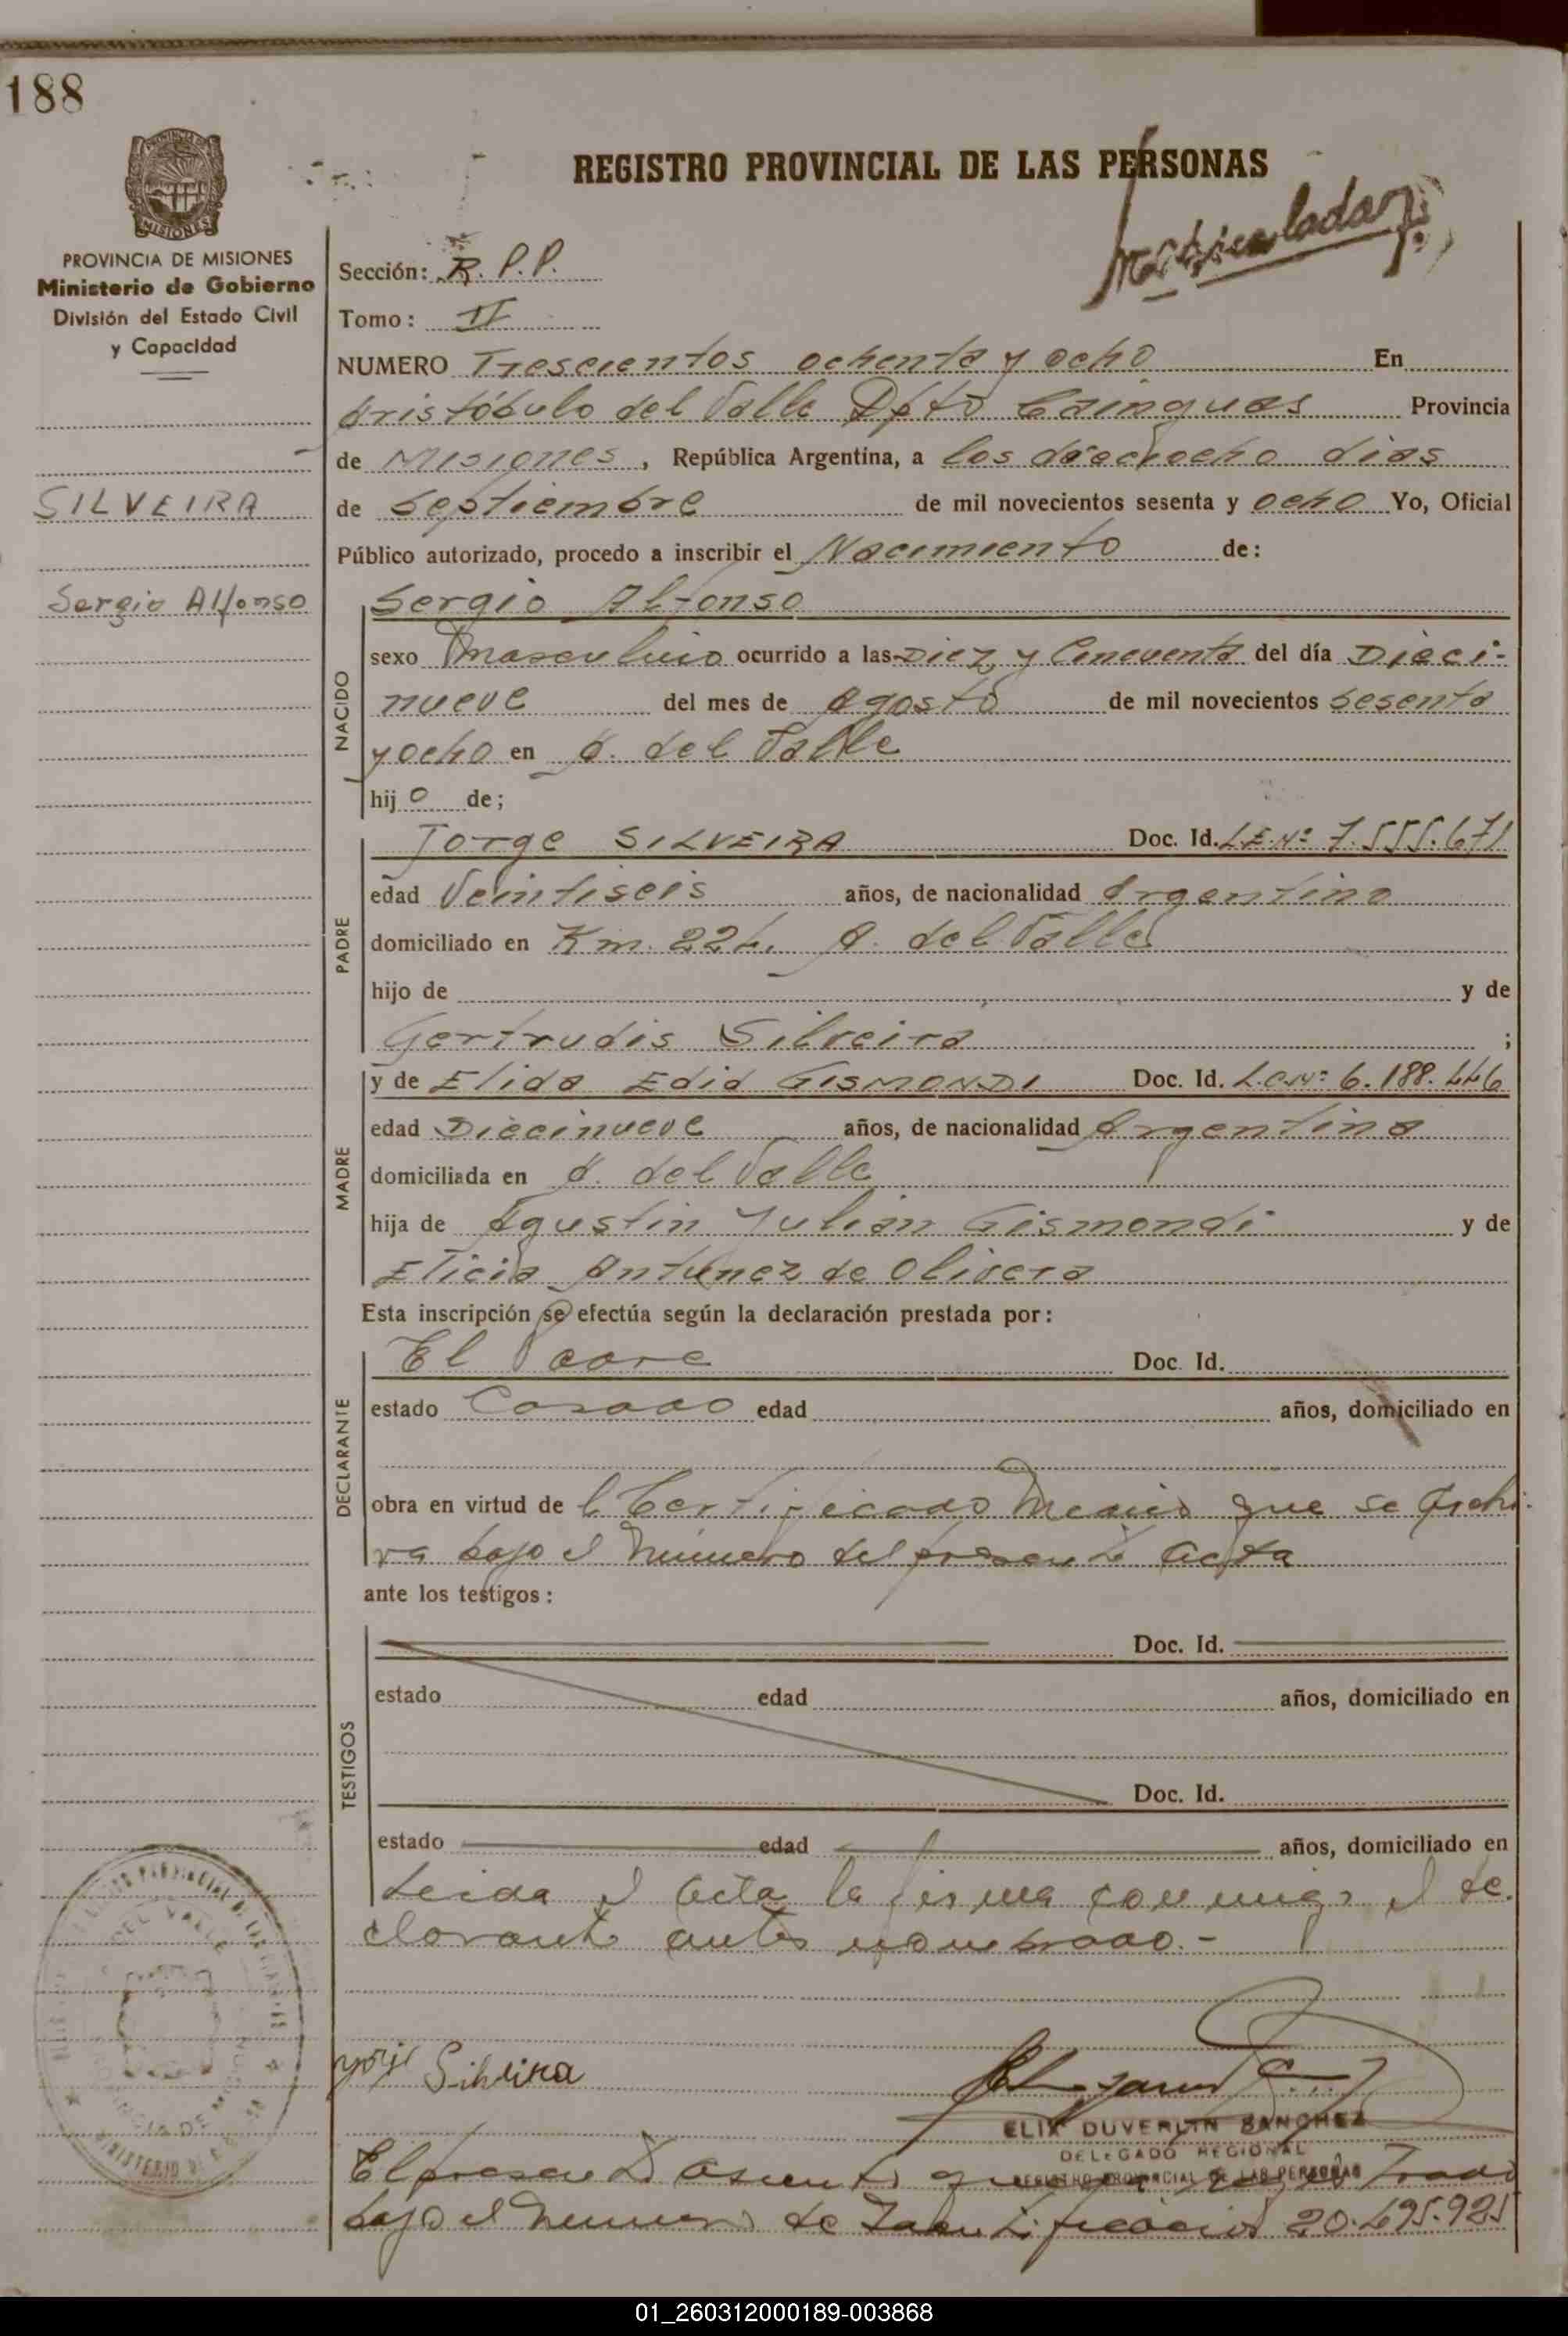 188
REGISTRO PROVINCIAL DE LAS PERSONAS
Matriculado
PROVINCIA DE MISIONES
Ministerio de Gobierno
División del Estado Civil
y Capacidad
SILVEIRA
Sergio Alfonso
Sección: R. P. P.
Tomo: II
NUMERO Trescientos ochenta y ocho En
Aristóbulo del Valle Dpto Cainguas Provincia
de Misiones, República Argentina, a los dieciocho dias
de Septiembre de mil novecientos sesenta y ocho Yo, Oficial
Público autorizado, procedo a inscribir el Nacimiento de:
NACIDO
Sergio Alfonso
sexo Masculino ocurrido a las Diez y Cincuenta del día Dieci-
nueve del mes de Agosto de mil novecientos Sesenta
y ocho en A. del Valle
hijo de;
PADRE
Jorge SILVEIRA Doc. Id. L.E.Nº 7.555.671
edad Veintiseis años, de nacionalidad Argentina
domiciliado en Km. 224. A. del Valle
hijo de y de
Gertrudis Silveira ;
MADRE
y de Elida Edid GISMONDI Doc. Id. L.C.Nº 6.188.446
edad Diecinueve años, de nacionalidad Argentina
domiciliada en A. del Valle
hija de Agustin Julian Gismondi y de
Elicia Antunez de Olivera
Esta inscripción se efectúa según la declaración prestada por:
DECLARANTE
El Padre Doc. Id.
estado Casado edad años, domiciliado en
obra en virtud de l Certificado Medico que se Archi-
va bajo el Número del presente Acta
ante los testigos:
TESTIGOS
Doc. Id.
estado edad años, domiciliado en
Doc. Id.
estado edad años, domiciliado en
Leida el Acta la firma conmigo el de-
clarante antes nombrado.-
Silveira
ELIX DUVERLIN SANCHEZ
DELEGADO REGIONAL
REGISTRO PROVINCIAL DE LAS PERSONAS
El presente Asiento
bajo el Numero de Identificacion 20.495.925
DEL VALLE
01_260312000189-003868